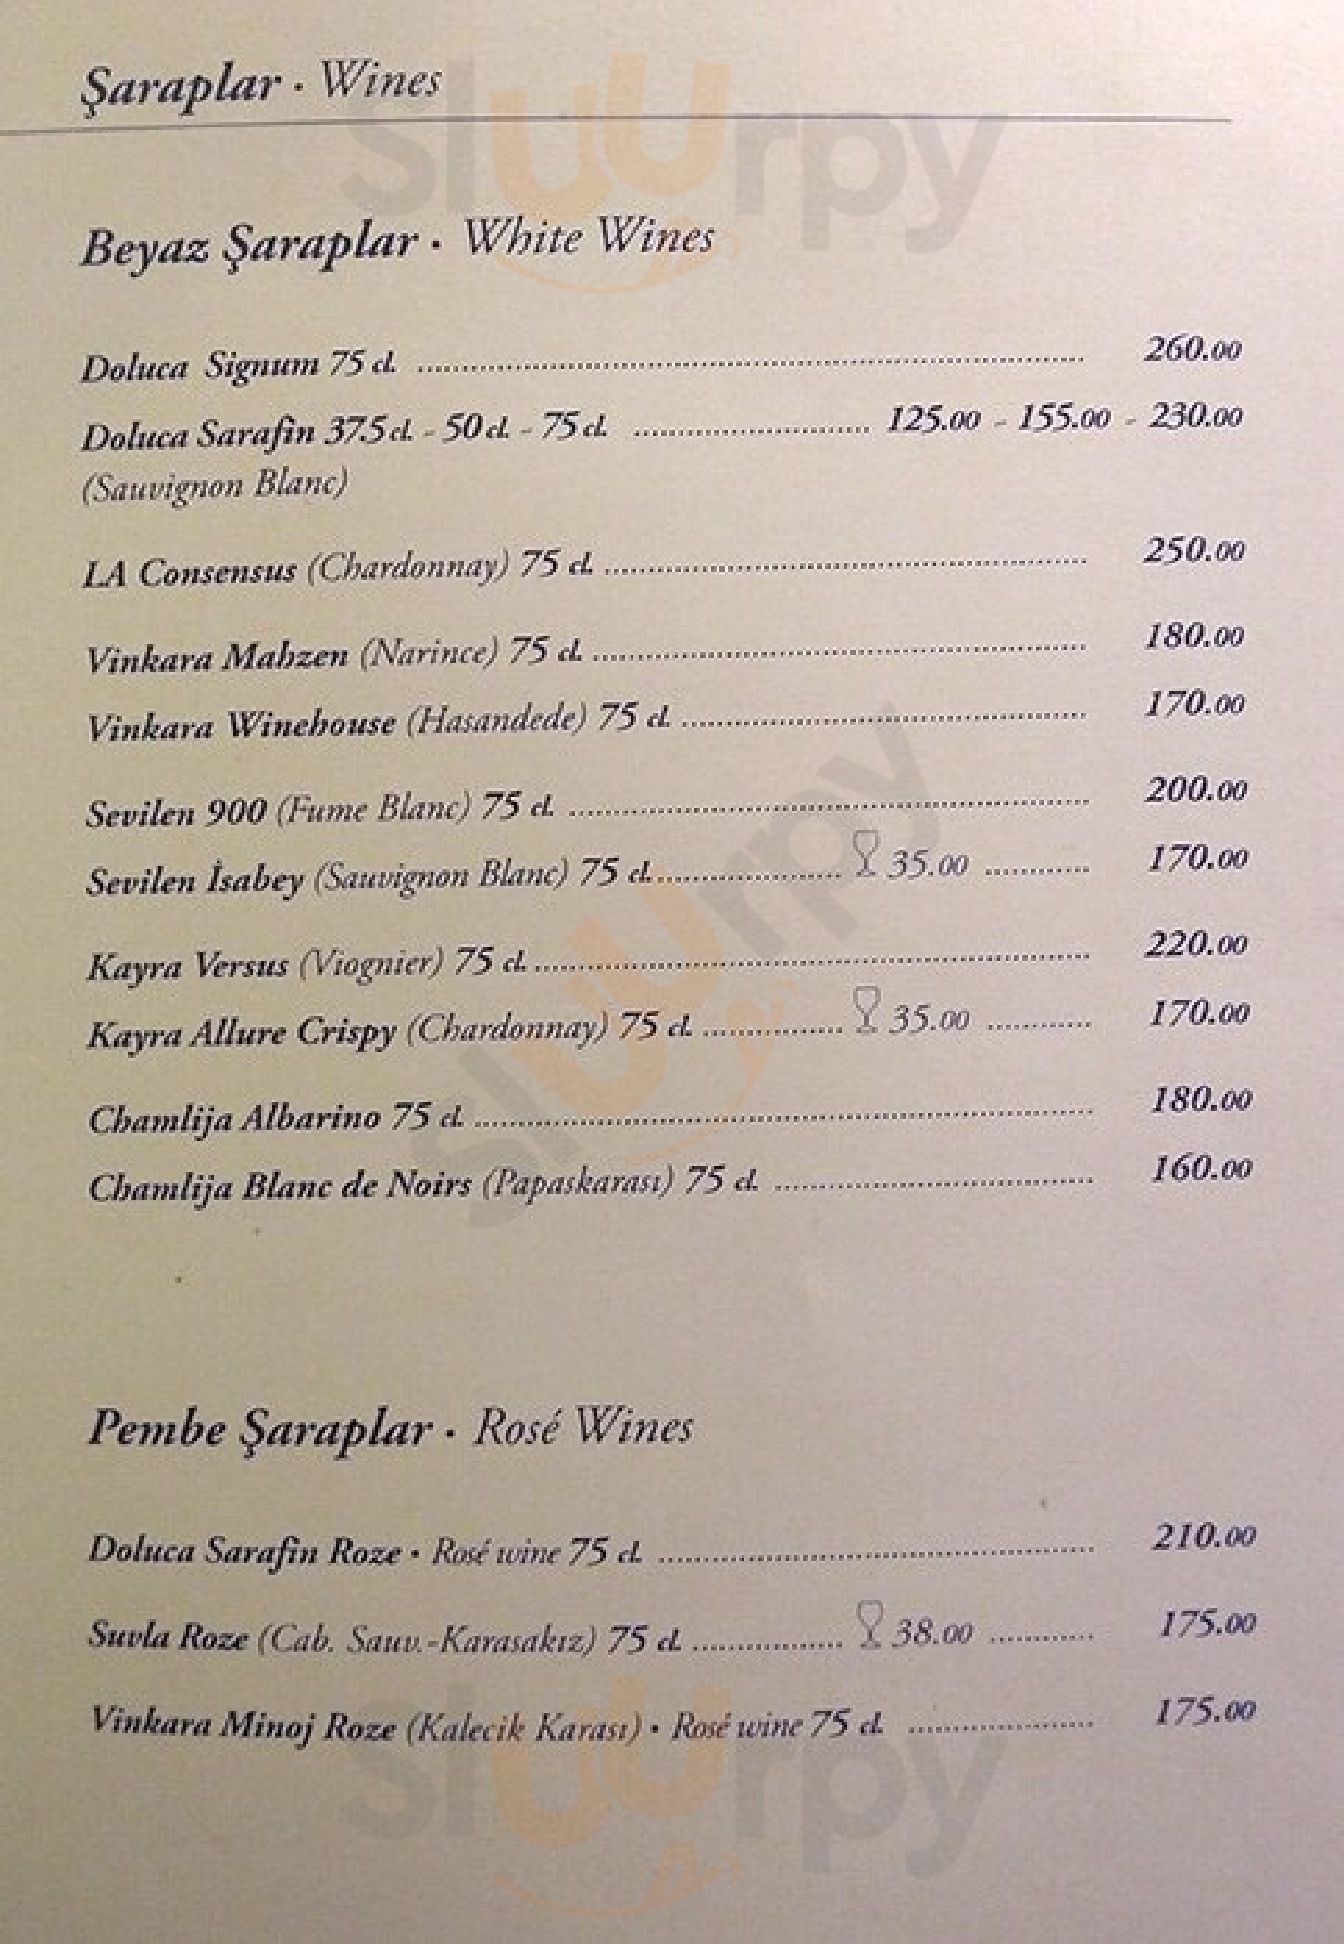 Şaraplar · Wines
Beyaz Şaraplar · White Wines
Doluca Signum 75 cl. ........................ 260.00
Doluca Sarafin 37.5 cl. - 50 cl. - 75 cl. ........................ 125.00 - 155.00 - 230.00
(Sauvignon Blanc)
LA Consensus (Chardonnay) 75 cl. ........................ 250.00
Vinkara Mahzen (Narince) 75 cl. ........................ 180.00
Vinkara Winehouse (Hasandede) 75 cl. ........................ 170.00
Sevilen 900 (Fume Blanc) 75 cl. ........................ 200.00
Sevilen İsabey (Sauvignon Blanc) 75 cl. ............ 35.00 ............ 170.00
Kayra Versus (Viognier) 75 cl. ........................ 220.00
Kayra Allure Crispy (Chardonnay) 75 cl. ............ 35.00 ............ 170.00
Chamlija Albarino 75 cl. ........................ 180.00
Chamlija Blanc de Noirs (Papaskarası) 75 cl. ........................ 160.00
Pembe Şaraplar · Rosé Wines
Doluca Sarafin Roze • Rosé wine 75 cl. ........................ 210.00
Suvla Roze (Cab. Sauv.-Karasakız) 75 cl. ............ 38.00 ............ 175.00
Vinkara Minoj Roze (Kalecik Karası) • Rosé wine 75 cl. ............ 175.00
Sluurpy
Sluurpy
Sluurpy